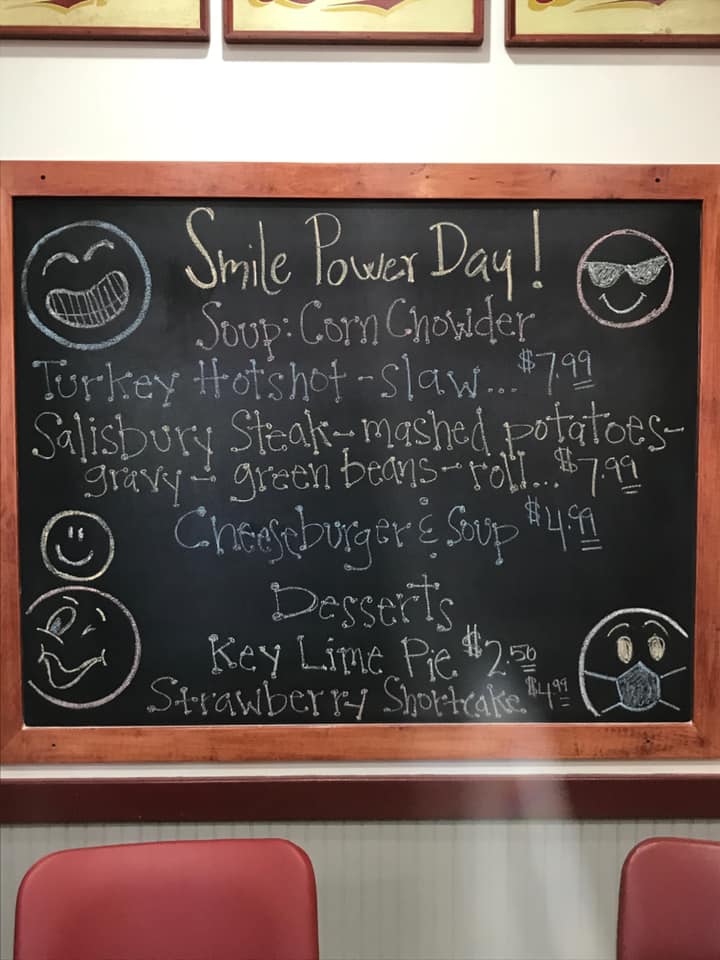 Smile Power Day!
Soup: Corn Chowder
Turkey Hotshot - slaw... $7.99
Salisbury Steak - mashed potatoes -
gravy - green beans - roll... $7.99
Cheeseburger & Soup $4.99
Desserts
Key Lime Pie $2.50
Strawberry Shortcake $4.99